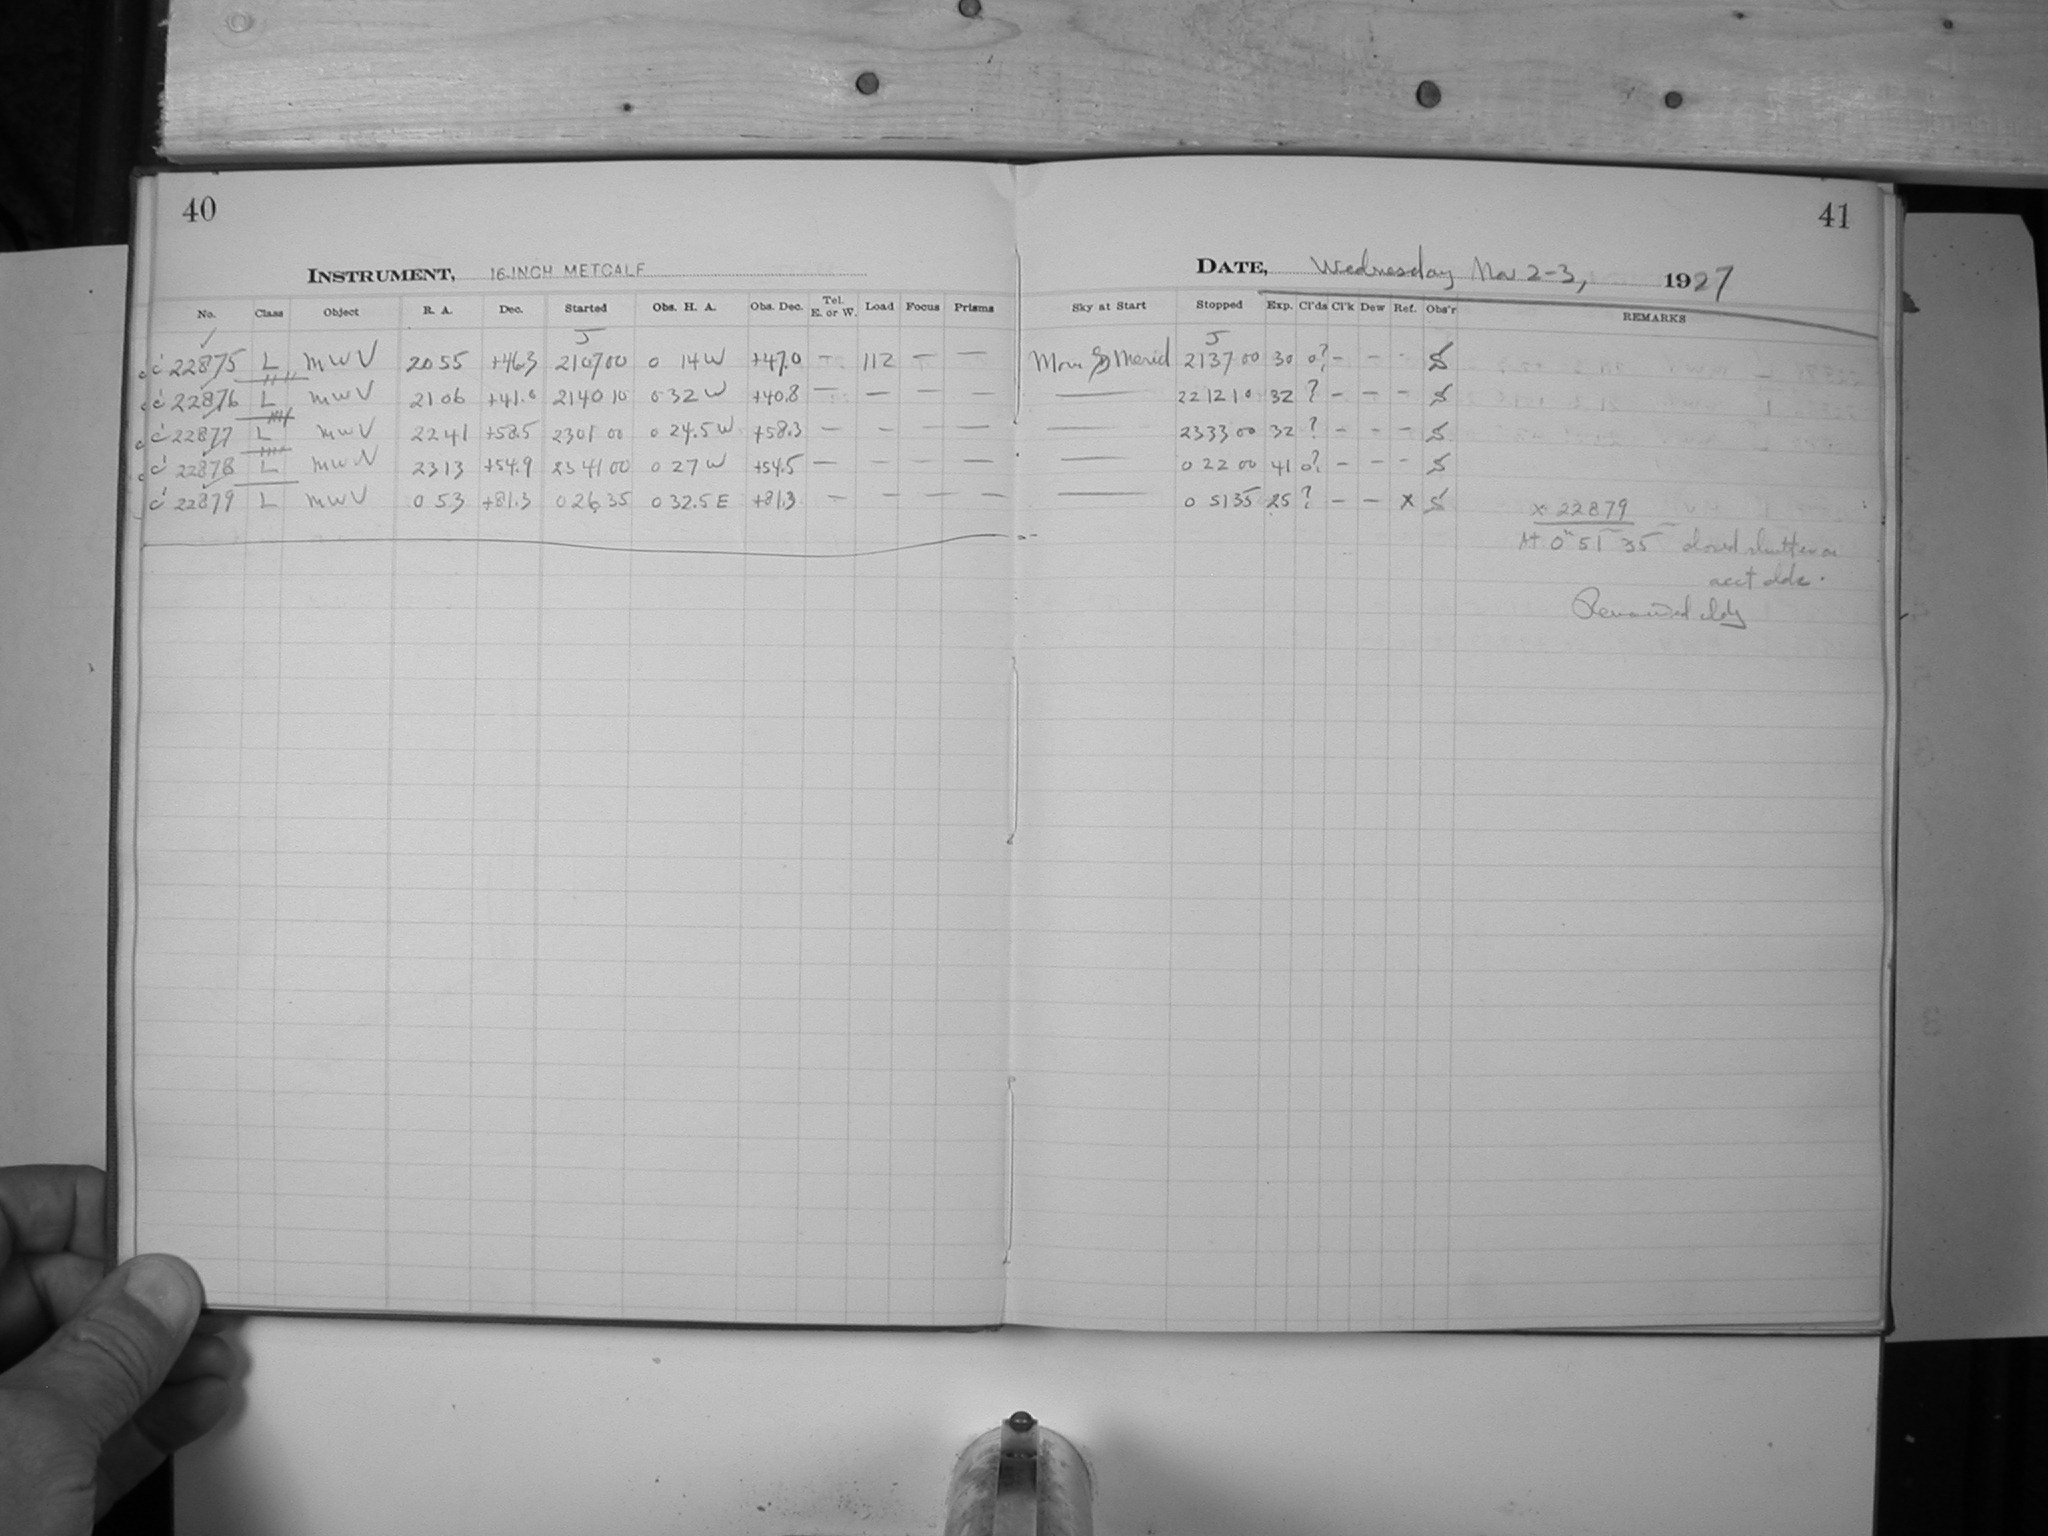 40
41
INSTRUMENT, 16-INCH METCALF
DATE, Wednesday Nov 2-3, 1927
No. Class Object R. A. Dec. Started Obs. H. A. Obs. Dec. Tel. E. or W. Load Focus Prisms Sky at Start Stopped Exp. Cl'ds Cl'k Dew Ref. Obs'r REMARKS
22875 L MWV 20 55 +46.3 21 07 00 0 14 W +47.0 — 112 — — Merid 21 37 00 30 0? – – – S
22876 L MWV 21 06 +41.0 21 40 10 0 32 W +40.8 — — — — — 22 12 10 32 ? – – – S
22877 L MWV 22 41 +58.5 23 01 00 0 24.5 W +58.3 — — — — — 23 33 00 32 ? – – – S
22878 L MWV 23 13 +54.9 23 41 00 0 27 W +54.5 — — — — — 0 22 00 41 0? – – – S
22879 L MWV 0 53 +81.3 0 26 35 0 32.5 E +81.3 — — — — — 0 51 35 25 ? – – x S
x 22879
At 0 51 35 closed shutter on
acct clds.
Remained cldy